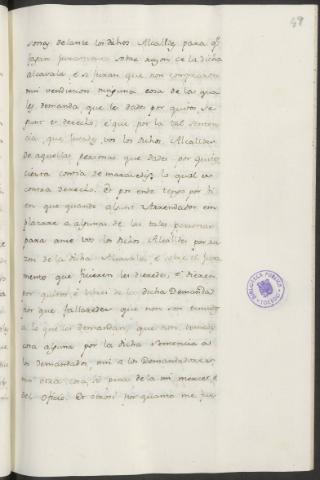 89
sores delante los dichos Alcalldes para qe
fagan juramento sobre razon de la dicha
alcavala, e si juran que non compraron
nin vendieron ninguna cosa de las que
les demanda, que les dades por quitos, se-
gunt es derecho, e que por la tal senten-
cia, que judgades vos los dichos Alcalldes
de aquellas personas que dades por quitos
cierta contia de maravedis, lo qual es
contra derecho. Et por ende tengo por bi-
en que quando algunt Arrendador em-
plazare a algunas de las tales personas
para ante vos los dichos Alcalldes por ra-
zon de la dicha Alcavala, e sobre el jura
mento que ficieren les dieredes, e dieren
por quitos e libres de la dicha Demanda
por que fallaredes que non son tenudos
a lo que les demandan, que non
cosa alguna por la dicha sentencia a
los demandados, nin a los Demandadores,
nin otra cosa, so pena de la mi merced, e
del oficio. Et otrosi por quanto me fue
BIBLIOTECA PUBLICA TOLEDO